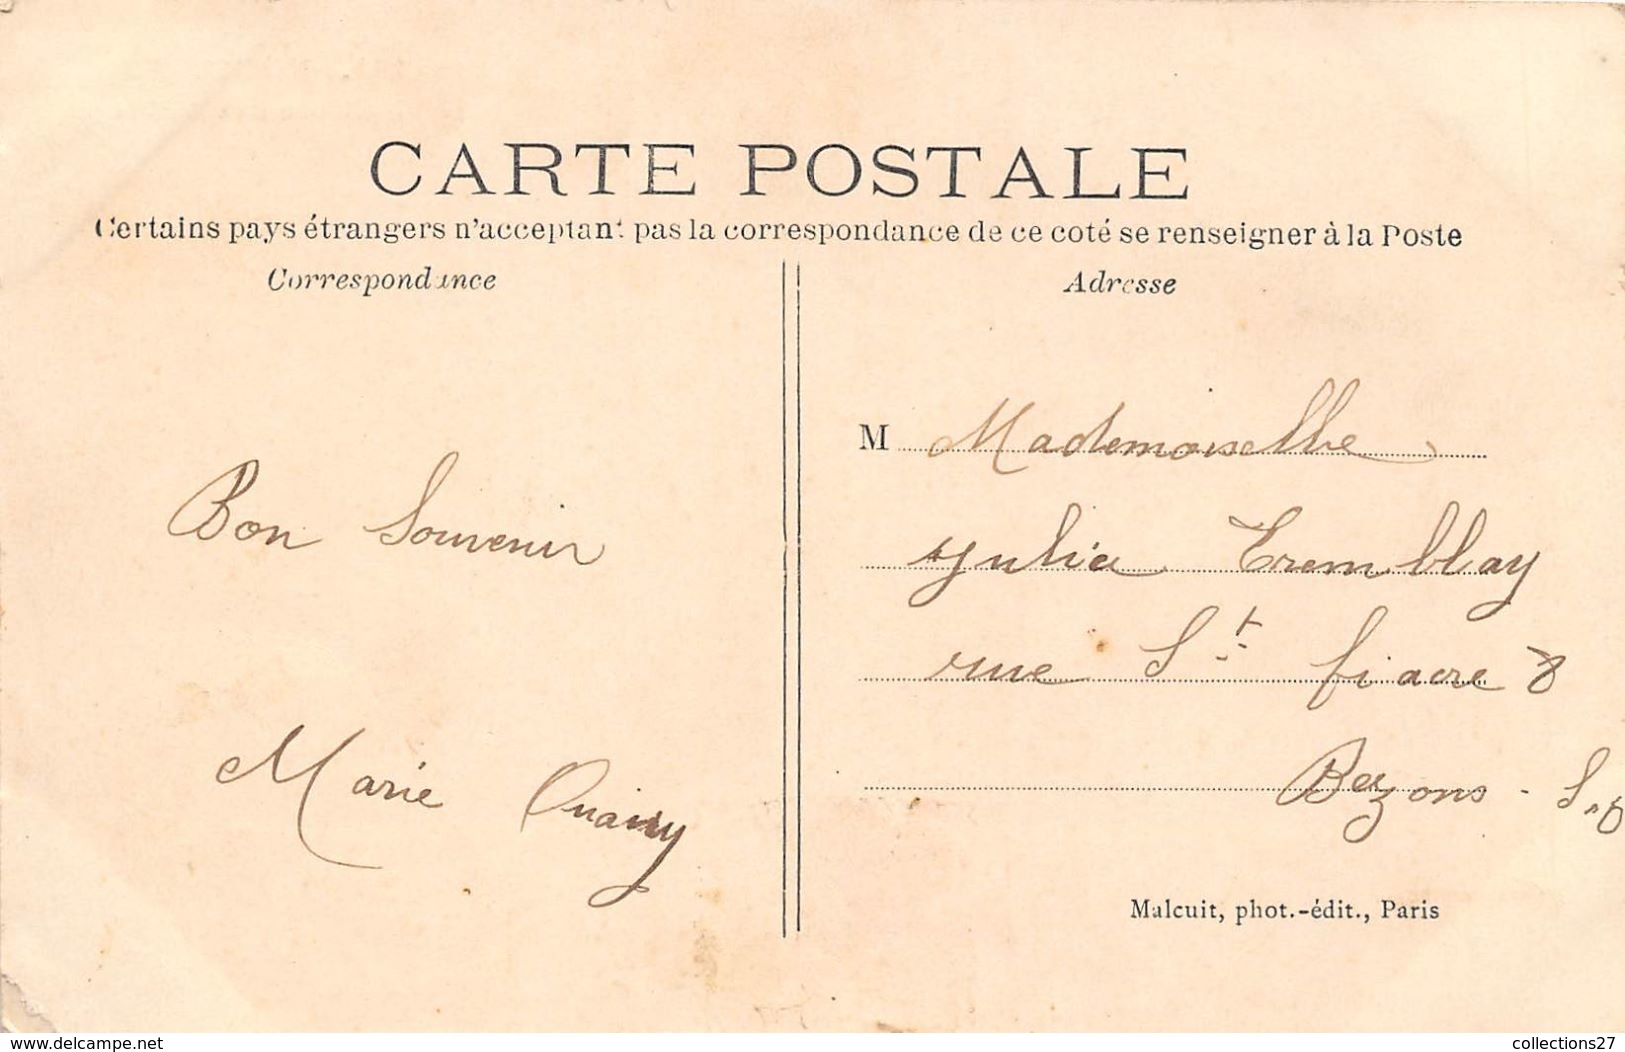 CARTE POSTALE
Certains pays étrangers n'acceptant pas la correspondance de ce coté se renseigner à la Poste
Correspondance
Bon Souvenir
Marie
Adresse
M Mademoiselle
Julia Tremblay
rue St fiacre 8
Bezons - S.
Malcuit, phot.-édit., Paris
www.delcampe.net
collections27